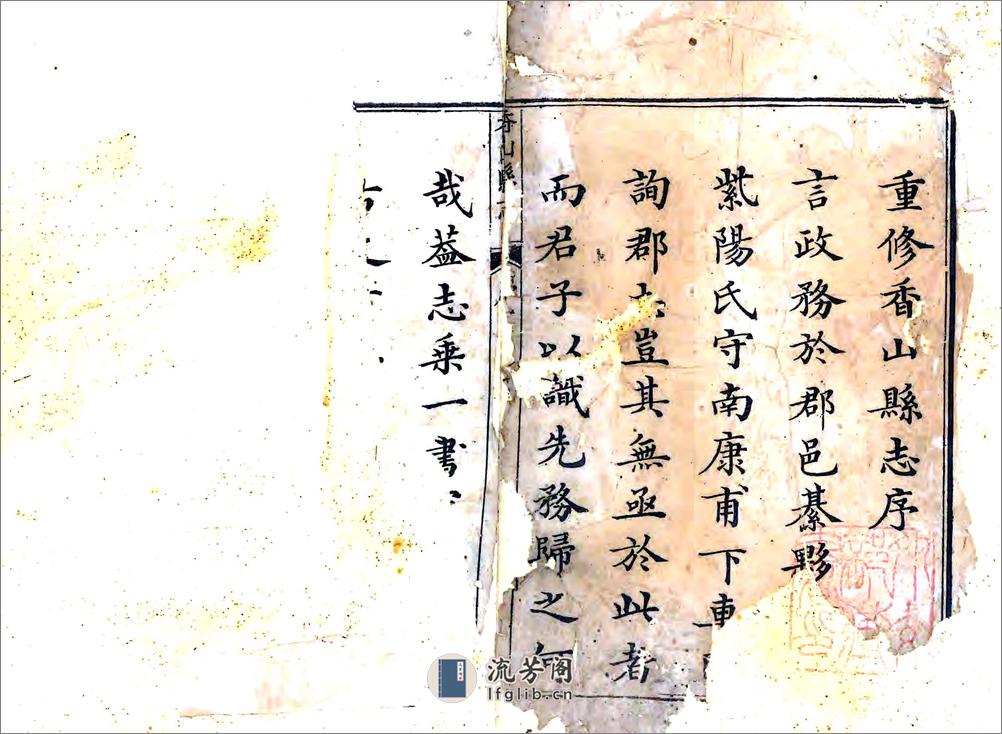 重修香山縣志序
言政務於郡邑綦夥
紫陽氏守南康甫下車
詢郡豈其無亟於此者
而君子以識先務歸之何
香山縣志
哉葢志乘一書
流芳阁
lfglib.cn